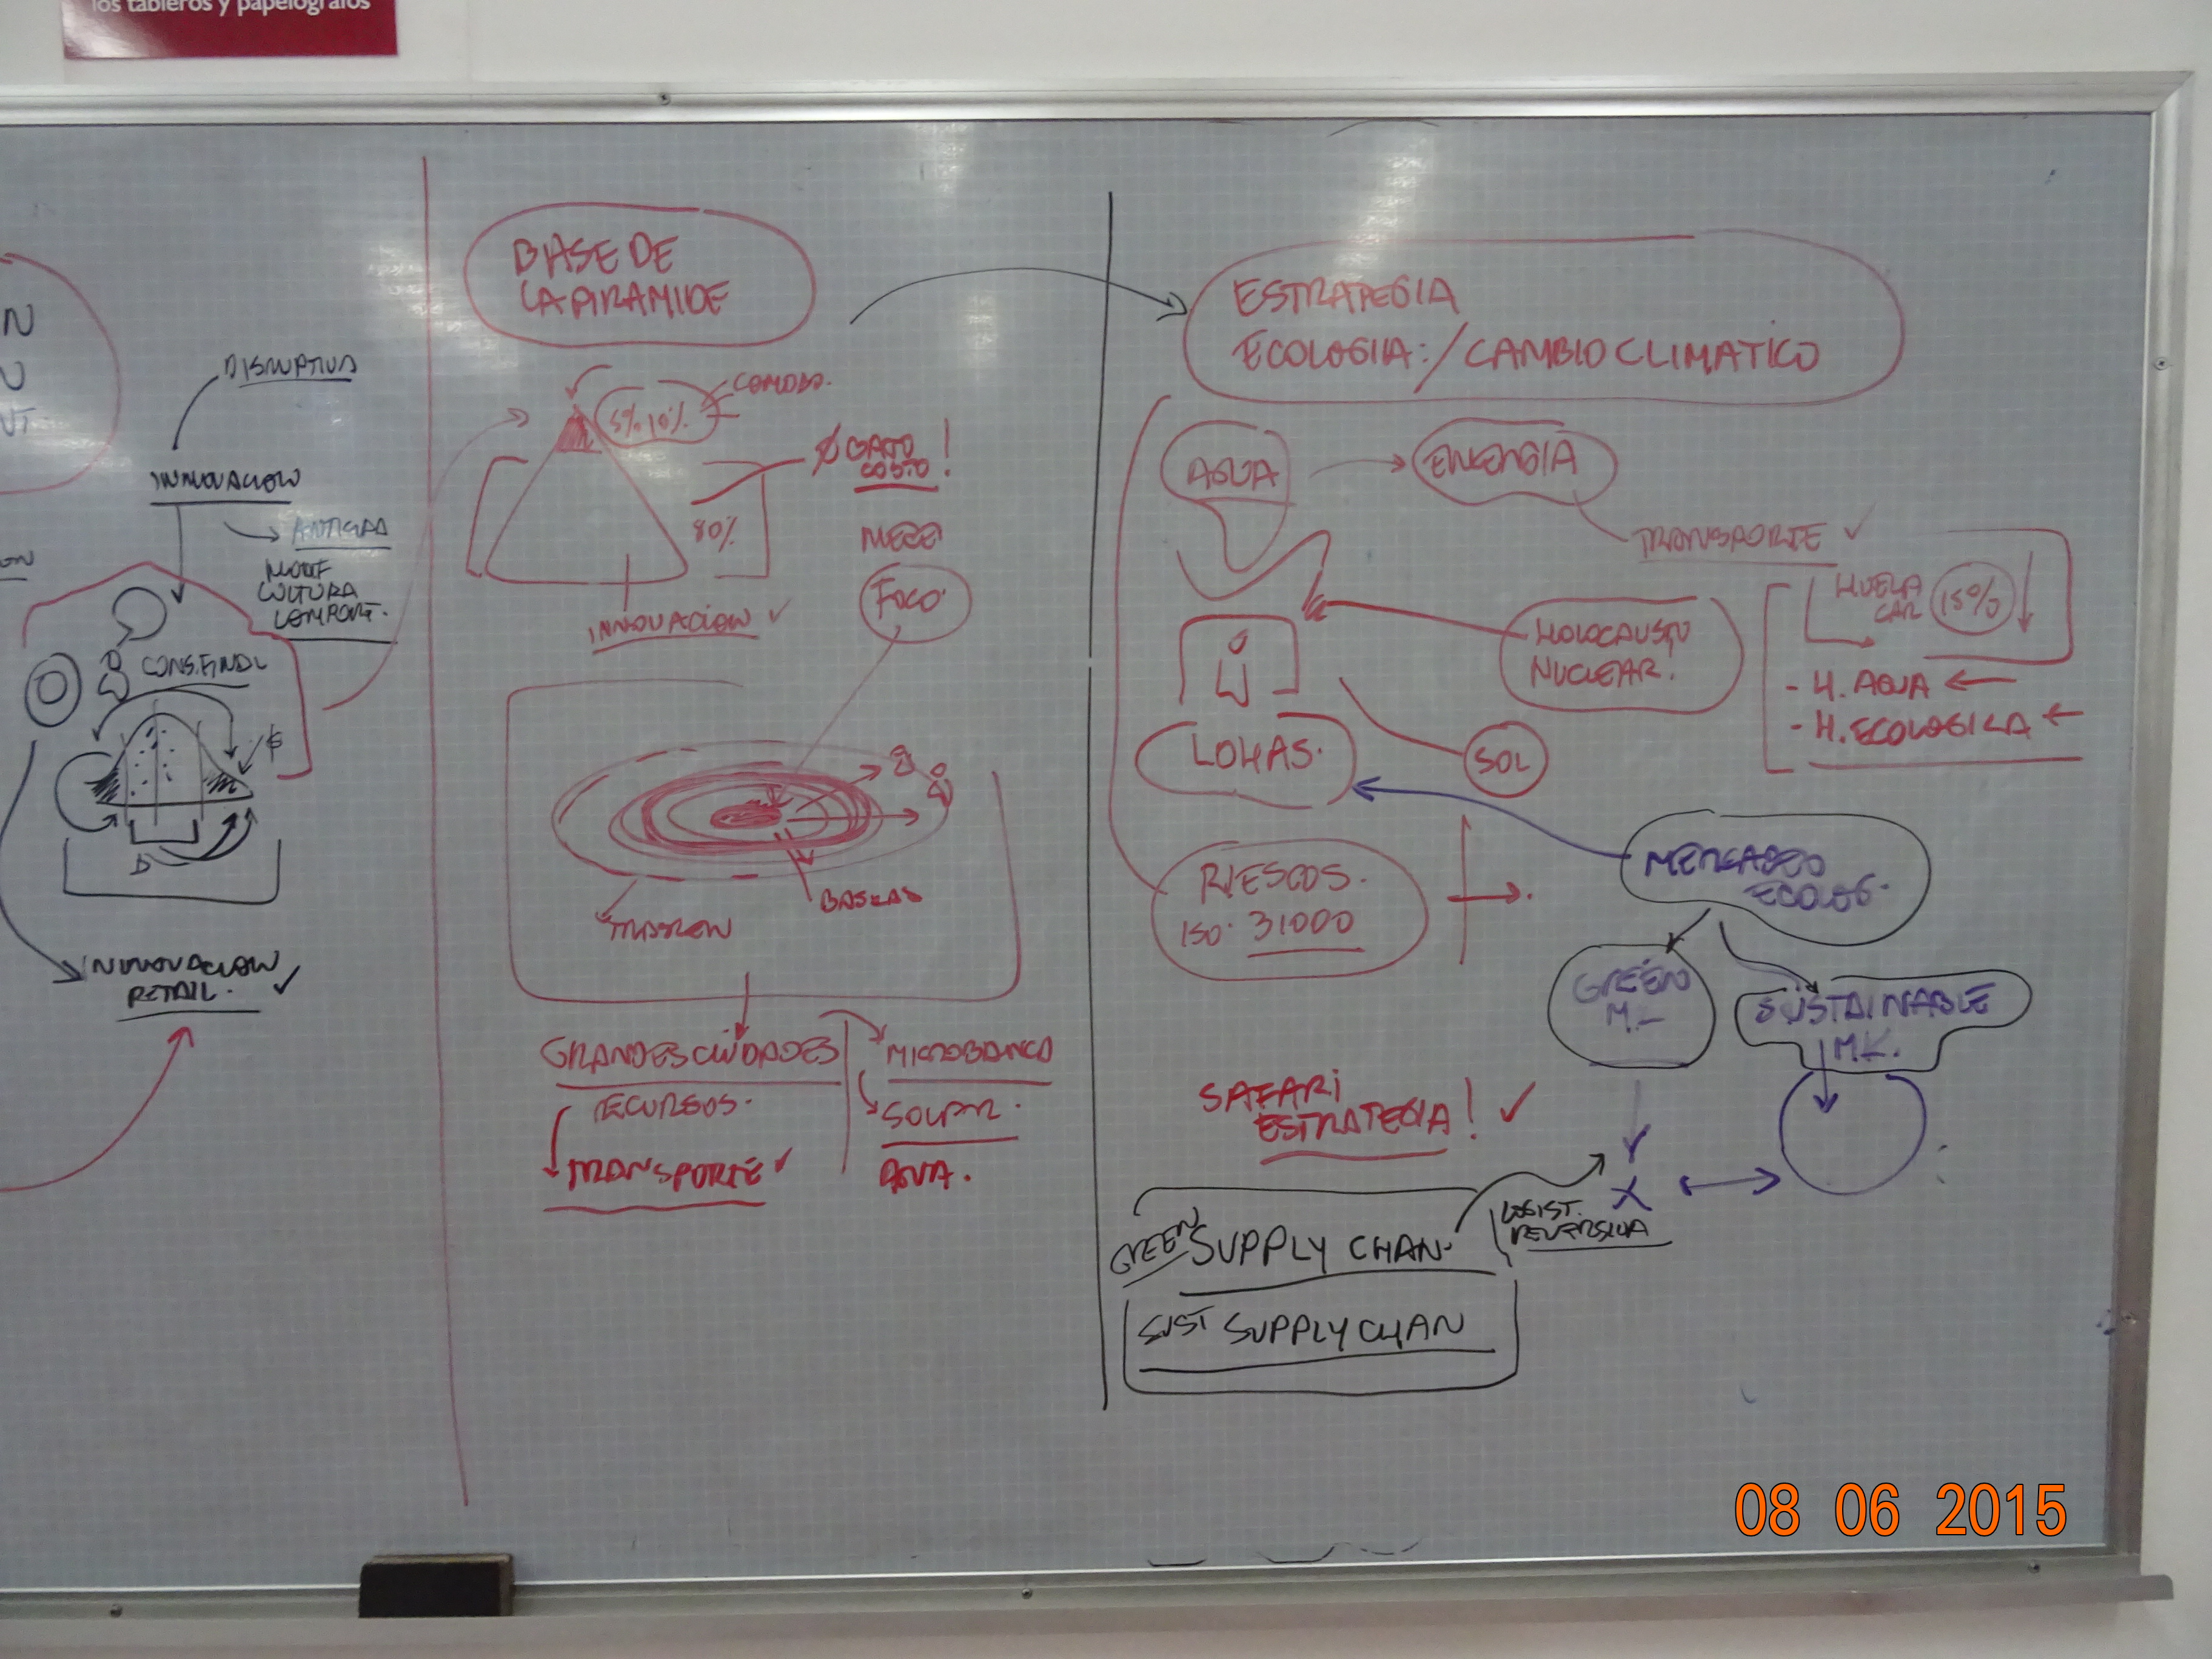 los tableros y papelógrafos
N
DISRUPTIVA
INNOVACION
CULTURA
COMPORT.
CONS. FINAL
INNOVACION
RETAIL.
BASE DE
LA PIRAMIDE
5% 10%
COMODI.
Ø GASTO
COSTO !
80%
INNOVACION
FOCO.
GRANDES CIUDADES
RECURSOS.
TRANSPORTE
MICROBANCA
SOLAR.
AGUA.
ESTRATEGIA
ECOLOGIIA:/CAMBIO CLIMATICO
AGUA
ENERGIA
TRANSPORTE
HUELLA
CAR
15%
- H. AGUA
- H. ECOLOGICA
HOLOCAUSTO
NUCLEAR.
LOHAS.
SOL
RIESGOS.
ISO. 31000
MERCADEO
ECOLOG.
GREEN
M.K
SUSTAINABLE
MK.
SAFARI
ESTRATEGIA!
X
LOGIST.
REVERSIVA
GREEN SUPPLY CHAN.
SUST SUPPLY CHAN
08 06 2015